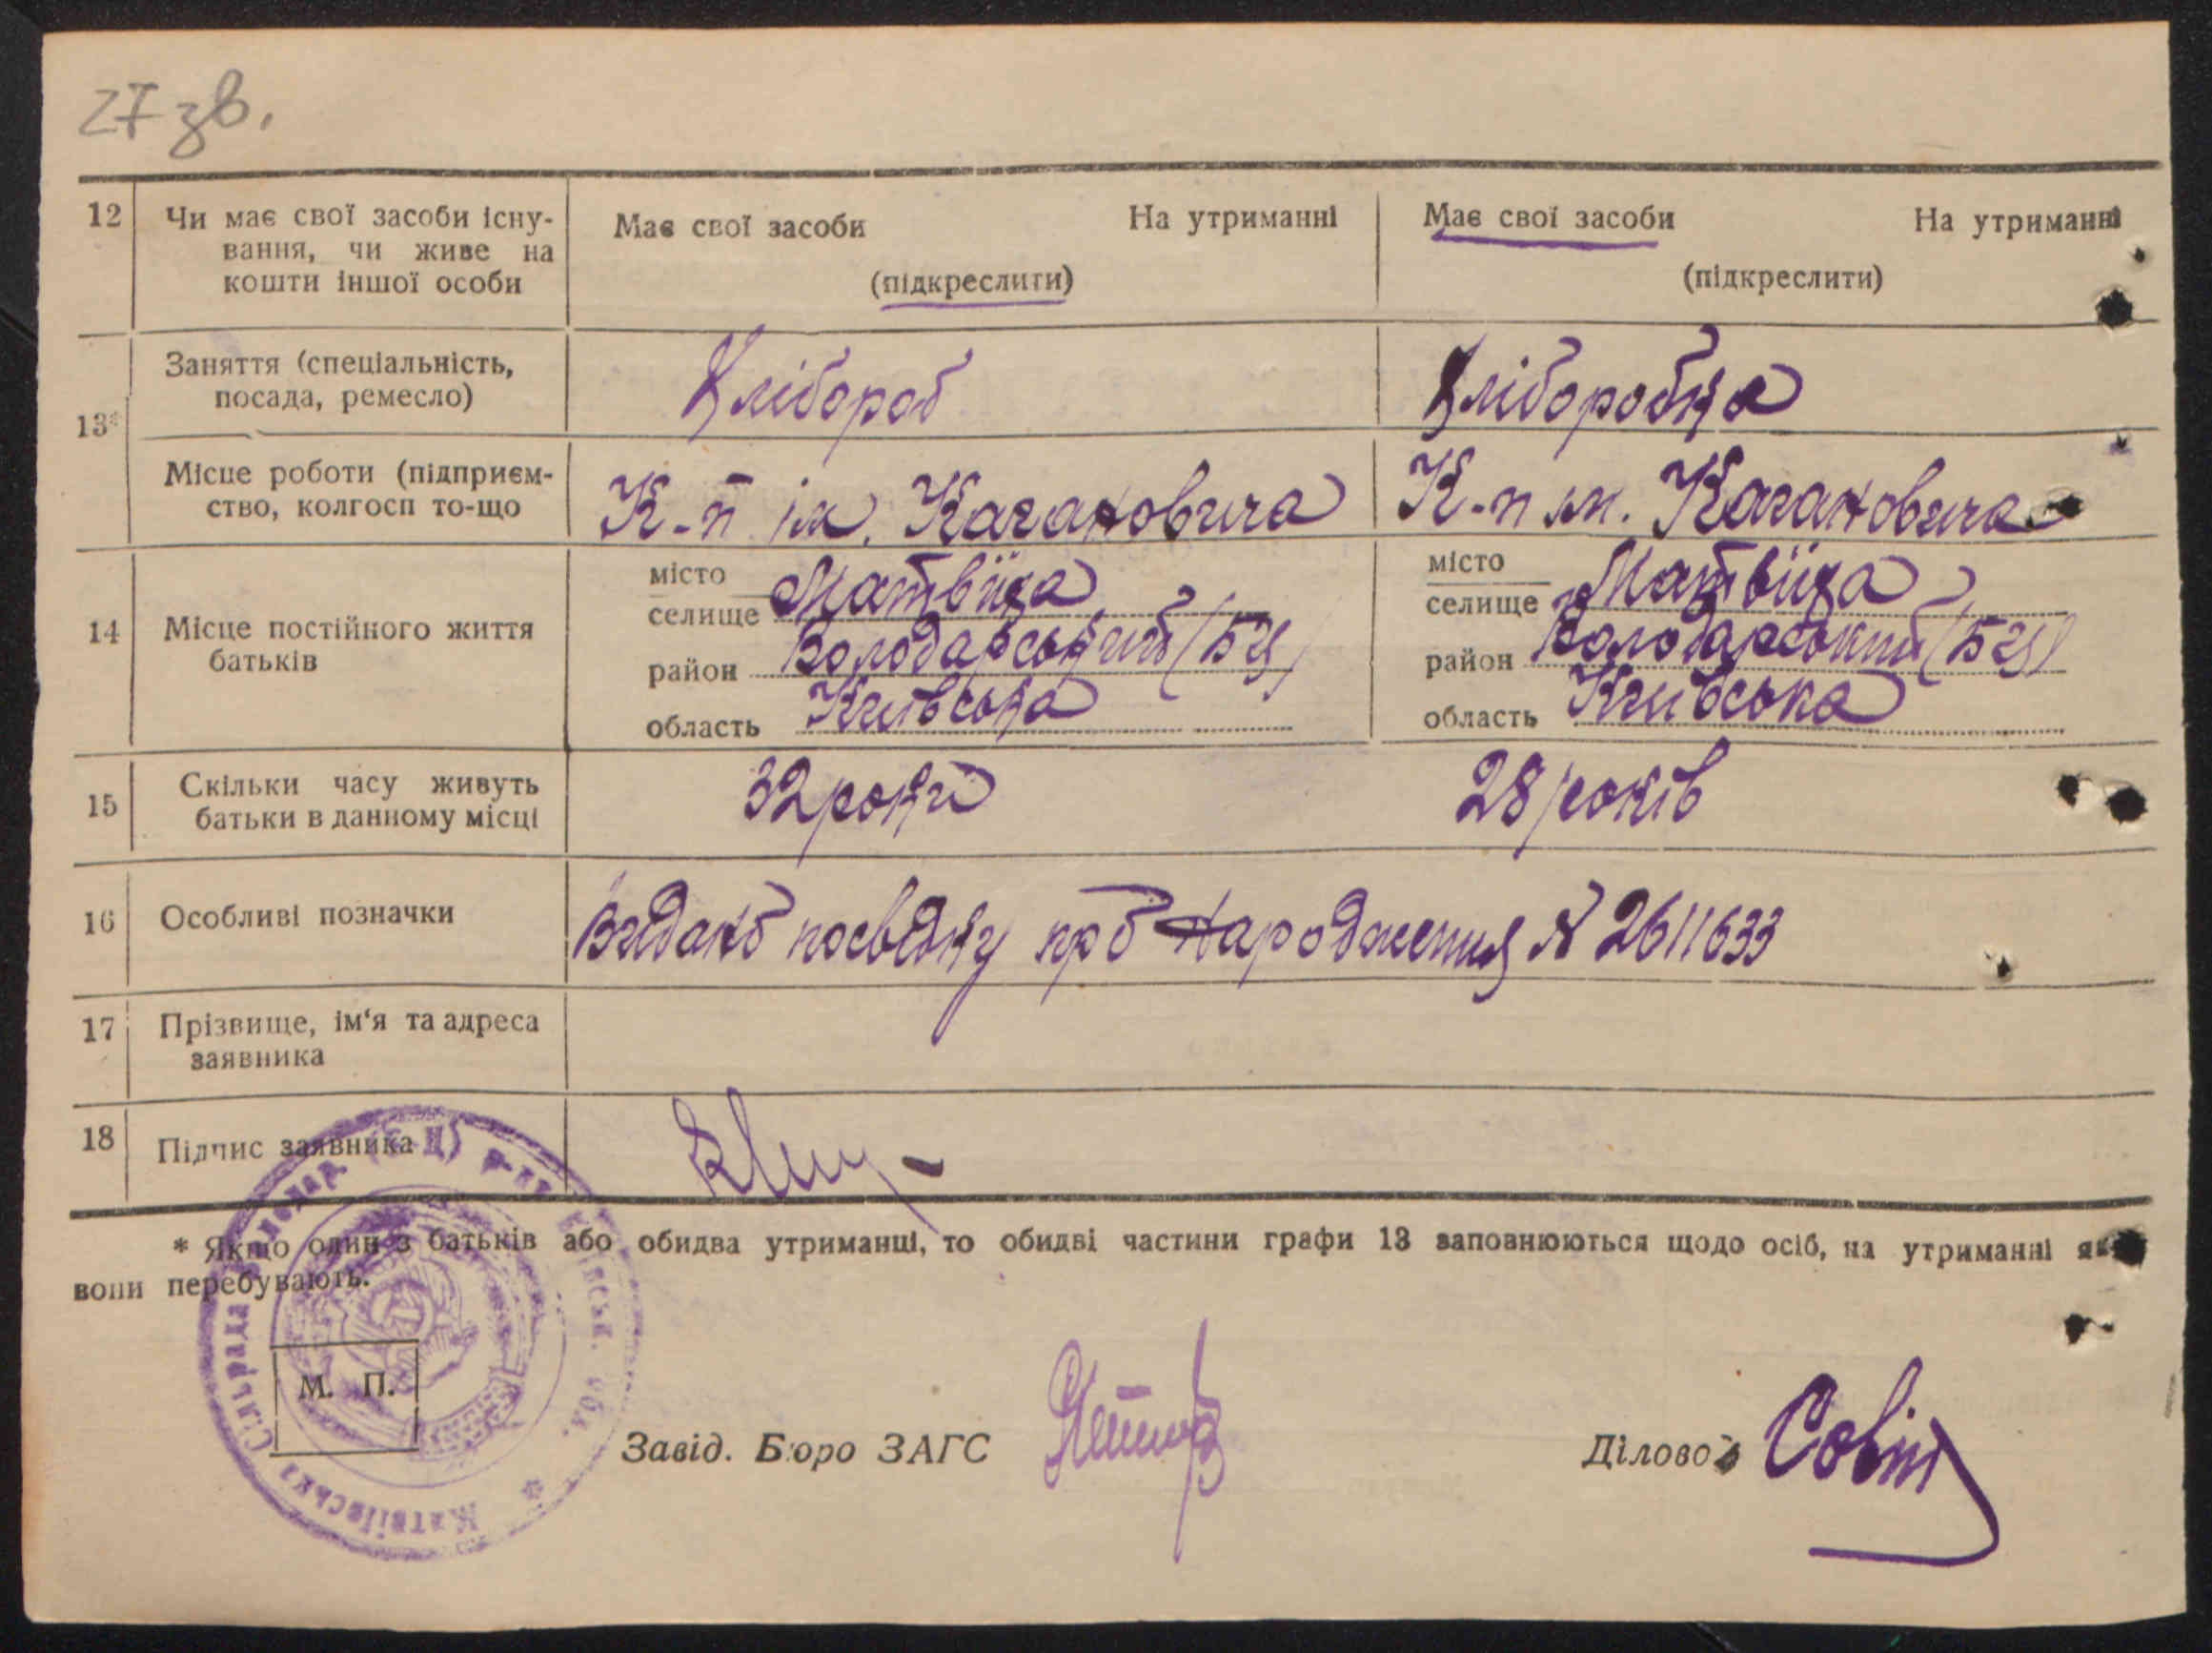 27 зв.
12 Чи має свої засоби існу-
вання, чи живе на
кошти іншої особи
Має свої засоби На утриманні
(підкреслити)
Має свої засоби На утриманні
(підкреслити)
13*
Заняття (спеціальність,
посада, ремесло)
Хлібороб
Хліборобка
Місце роботи (підприєм-
ство, колгосп то-що
К-п ім. Кагановича
К-п ім. Кагановича
14 Місце постійного життя
батьків
місто
селище Матвіїха
район Володарський (БЦ)
область Київська
місто
селище Матвіїха
район Володарський (БЦ)
область Київська
15 Скільки часу живуть
батьки в данному місці
32 роки
28 років
16 Особливі позначки
Видано посвідку про народження № 2611633
17 Прізвище, ім'я та адреса
заявника
18 Підпис заявника
* Якщо один з батьків або обидва утриманці, то обидві частини графи 13 заповнюються щодо осіб, на утриманні як
вони перебувають.
Матвіївська Сільрада Володар. (Б-Ц) р-ну Київськ. обл.
М. П.
Завід. Бюро ЗАГС
Діловод